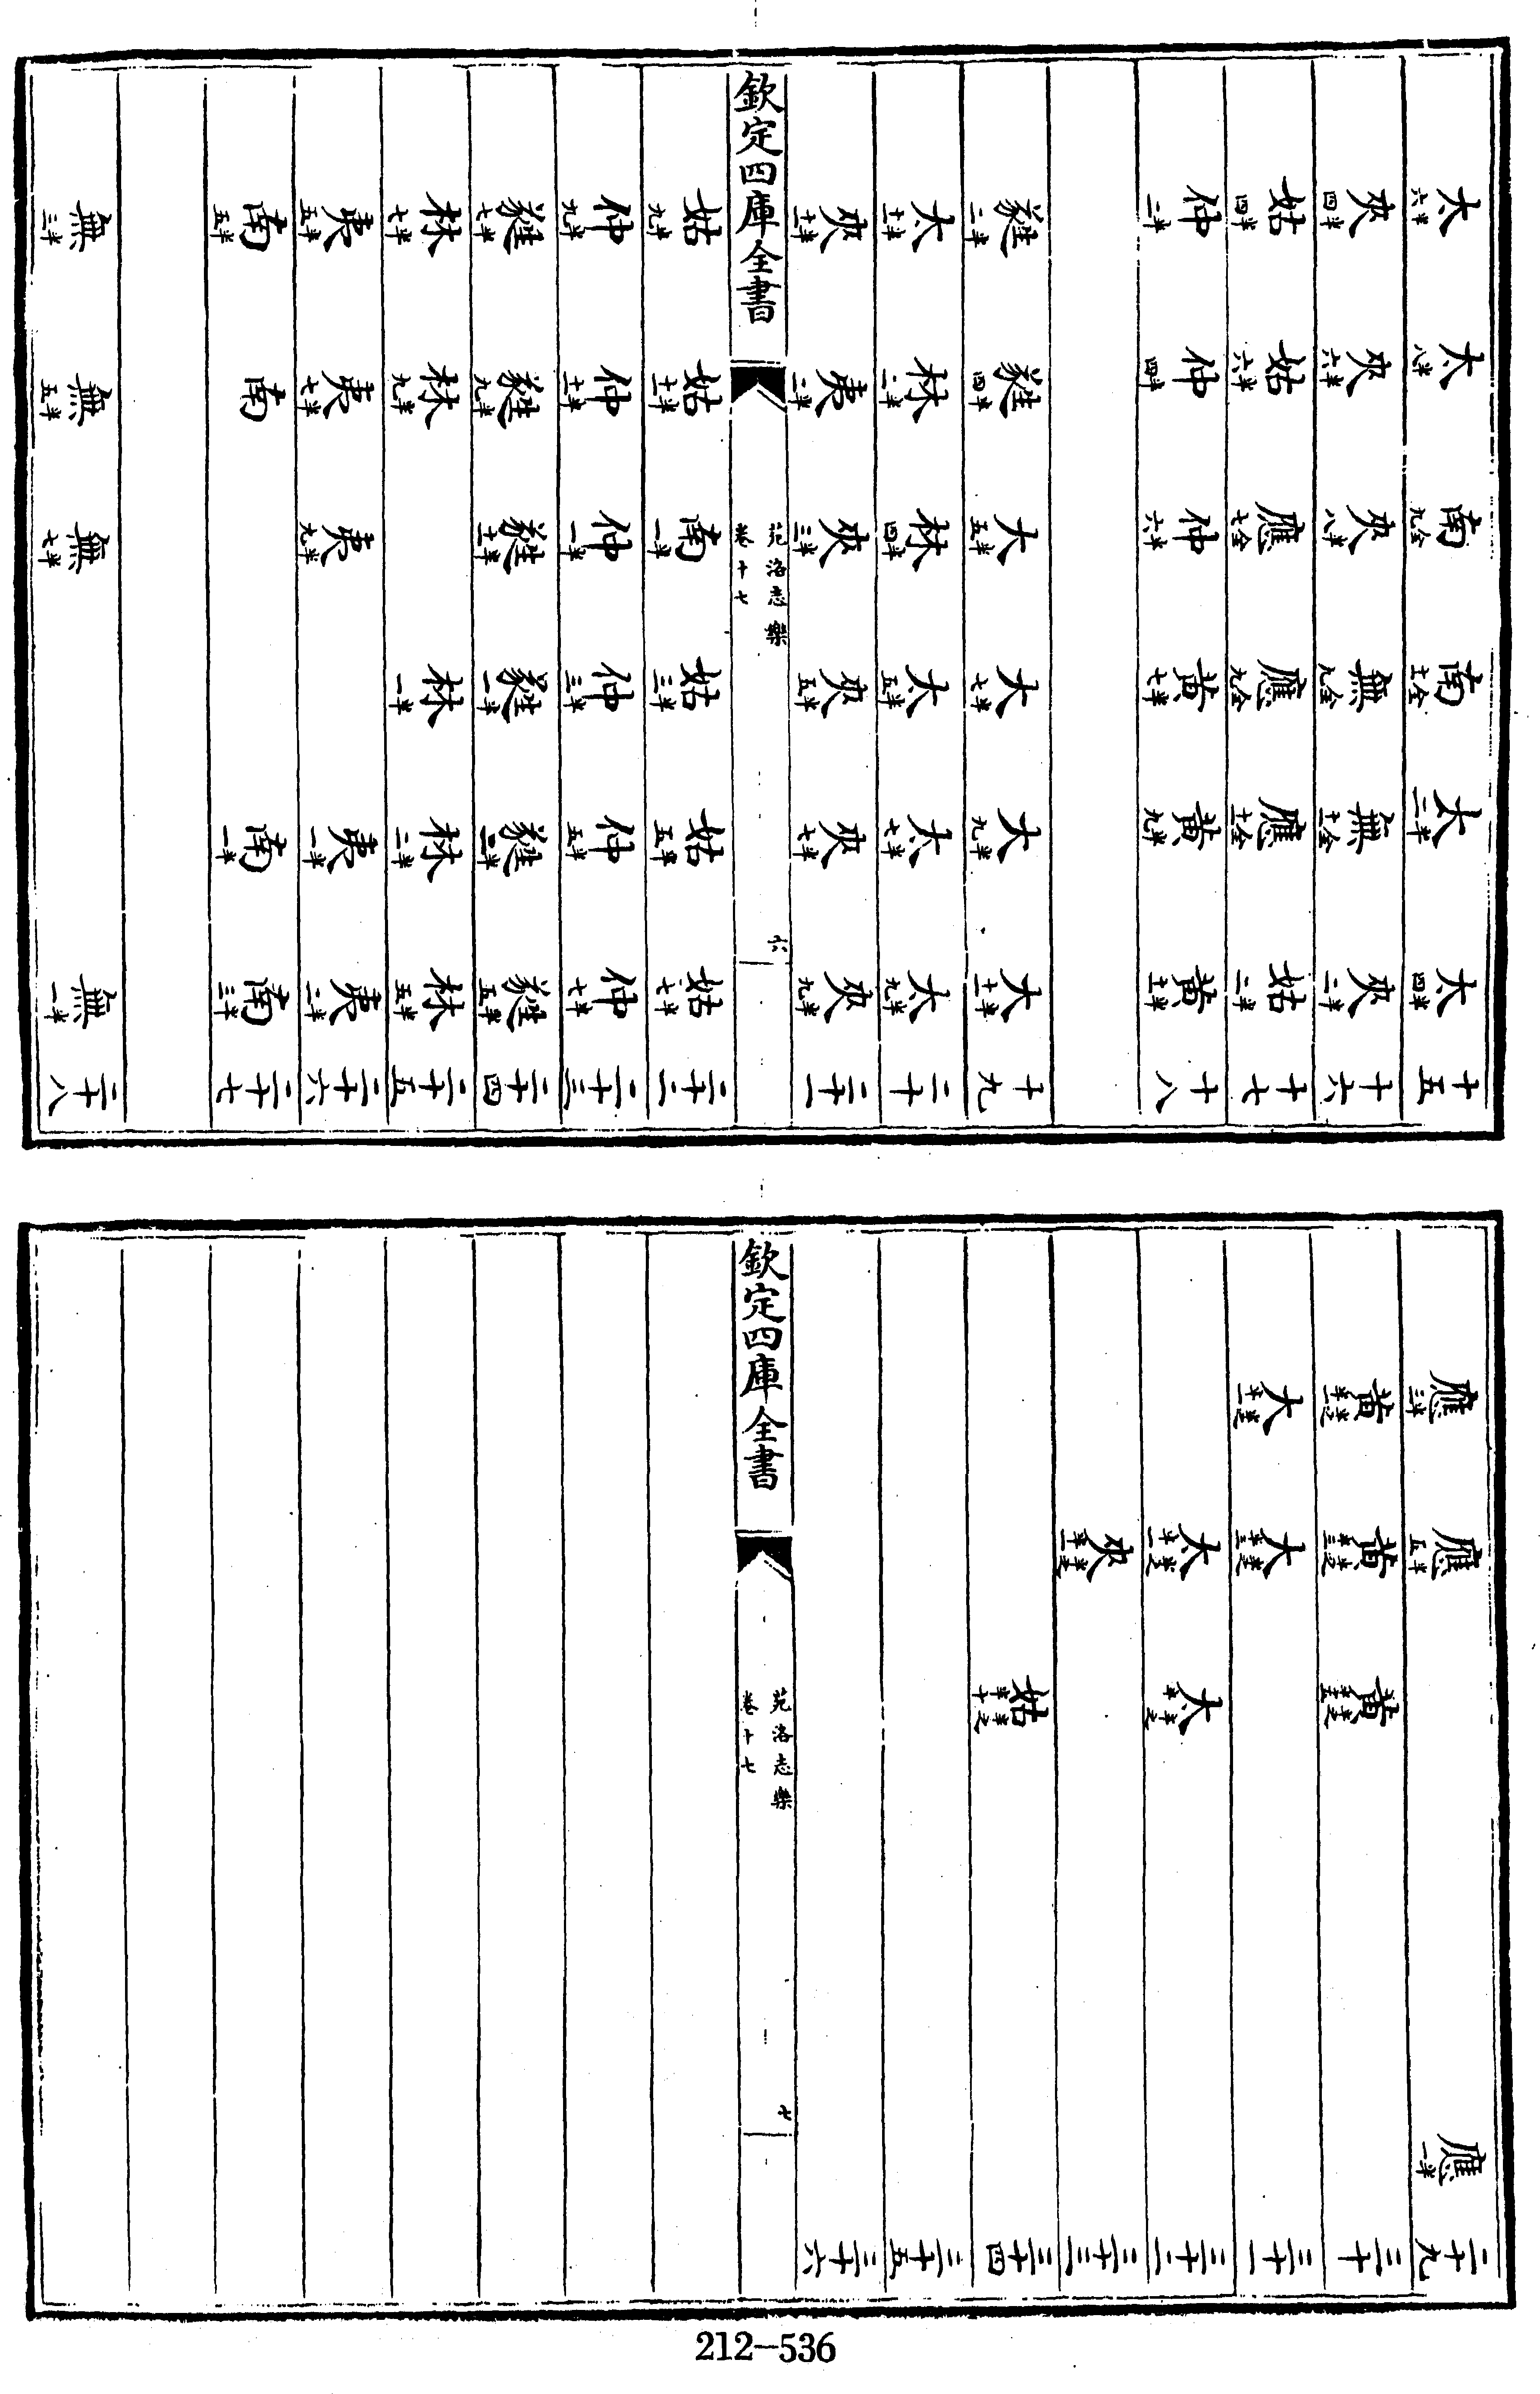 太六半 太八半 南九全 南十一全 太二半 太四半 十五
夾四半 夾六半 夾八半 無九全 無十一全 夾二半 十六
姑四半 姑六半 應七全 應九全 應十一全 姑二半 十七
仲二半 仲四半 仲六半 黃七半 黃九半 黃十一半 十八
蕤二半 蕤四半 大五半 大七半 大九半 大十一半 十九
太十一半 林二半 林四半 太五半 太七半 太九半 二十
夾十一半 夷二半 夾三半 夾五半 夾七半 夾九半 二十一
欽定四庫全書
苑洛志樂
卷十七
六
姑九半 姑十一半 南一半 姑三半 姑五半 姑七半 二十二
仲九半 仲十一半 仲一半 仲三半 仲五半 仲七半 二十三
蕤七半 蕤九半 蕤十一半 蕤一半 蕤三半 蕤五半 二十四
林七半 林九半 林一半 林二半 林五半 二十五
夷五半 夷七半 夷九半 夷一半 夷二半 二十六
南五半 南 南一半 南三半 二十七
無三半 無五半 無七半 無一半 二十八
應三半 應五半 應一半 二十九
黃 黃 黃 三十
大 大 三十一
太 太 三十二
夾 三十三
姑 三十四
三十五
三十六
欽定四庫全書
苑洛志樂
卷十七
七
212-536